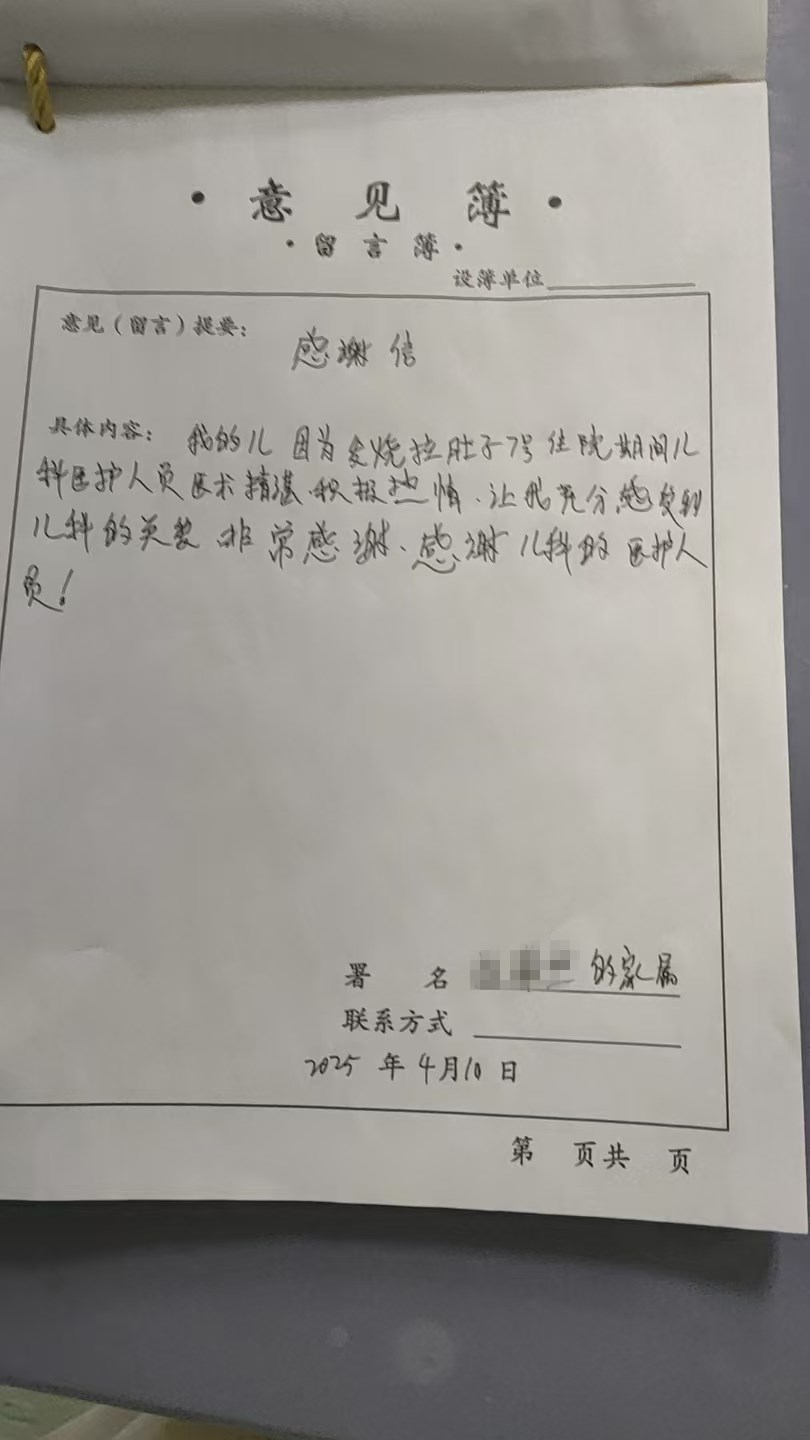 · 意 见 簿 ·
· 留 言 簿 ·
设簿单位
意见（留言）提要：
感谢信
具体内容： 我的儿 因为发烧拉肚子7号住院期间儿
科医护人员医术精湛、积极热情、让我充分感受到
儿科的关爱 非常感谢、感谢儿科的医护人
员！
署 名 的家属
联系方式
2025 年 4月10 日
第 页共 页